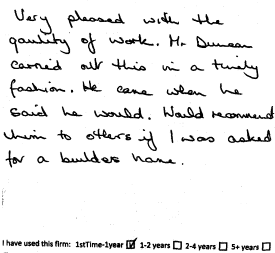 Very pleased with the
qaulity of work. Mr Duncan
carried out this in a timely
fashion. He came when he
said he would. Would recommend
him to others if I was asked
for a builders name.
I have used this firm: 1stTime-1year ☑ 1-2 years ☐ 2-4 years ☐ 5+ years ☐